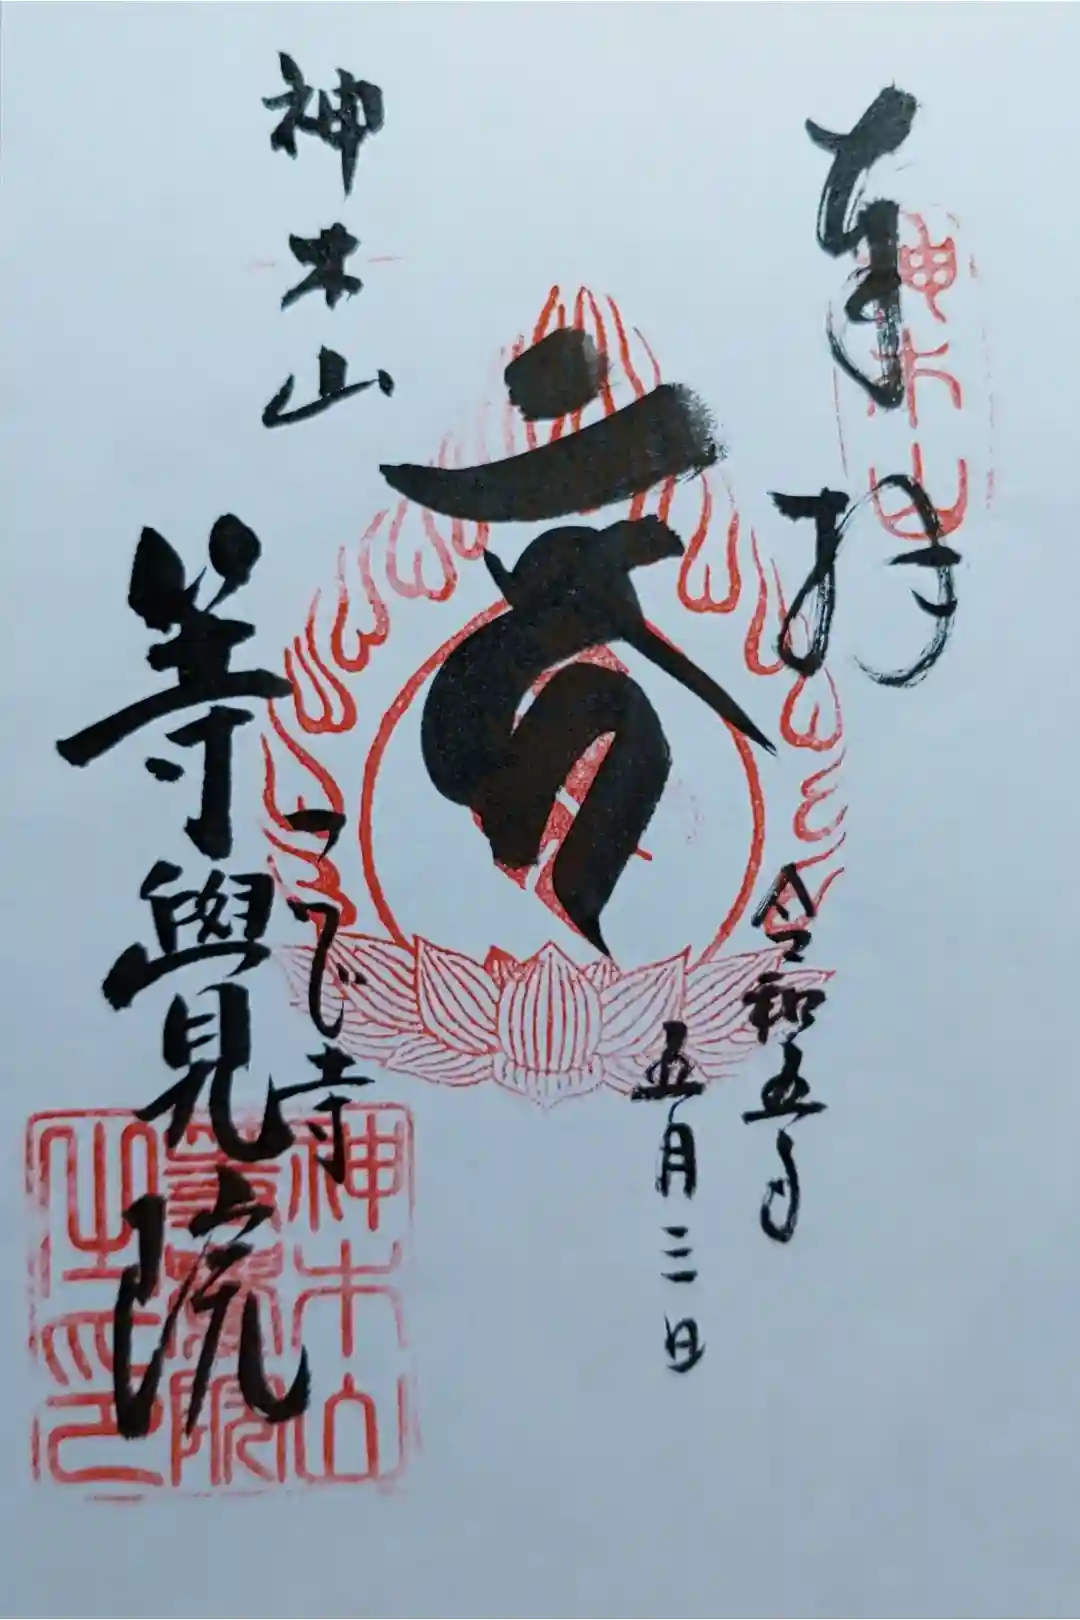 奉拝
令和五年
五月三日
神木山
つつじ寺
等覺院
神木山
神木山
等覺院
之印